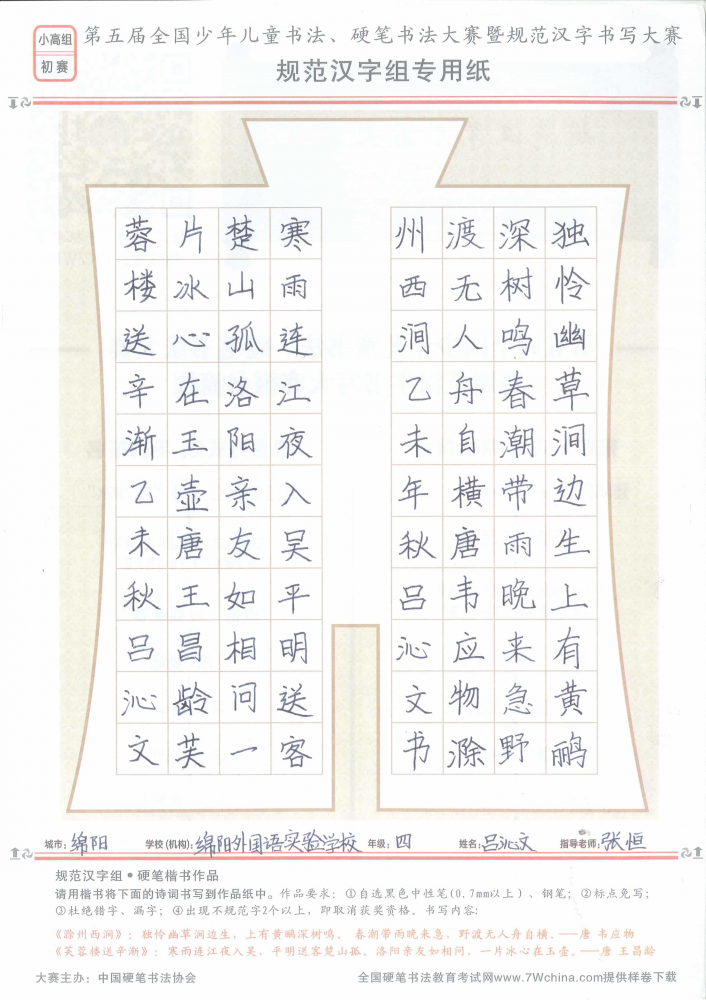 小高组
初赛
第五届全国少年儿童书法、硬笔书法大赛暨规范汉字书写大赛
规范汉字组专用纸
独怜幽草涧边生上有黄鹂
深树鸣春潮带雨晚来急野
渡无人舟自横唐韦应物滁
州西涧乙未年秋吕沁文书
寒雨连江夜入吴平明送客
楚山孤洛阳亲友如相问一
片冰心在玉壶唐王昌龄芙
蓉楼送辛渐乙未秋吕沁文
城市:绵阳 学校(机构):绵阳外国语实验学校 年级:四 姓名:吕沁文 指导老师:张恒
规范汉字组•硬笔楷书作品
请用楷书将下面的诗词书写到作品纸中。作品要求：①自选黑色中性笔(0.7mm以上)、钢笔；②标点免写；
③杜绝错字、漏字；④出现不规范字2个以上，即取消获奖资格。书写内容：
《滁州西涧》：独怜幽草涧边生，上有黄鹂深树鸣。 春潮带雨晚来急，野渡无人舟自横。——唐 韦应物
《芙蓉楼送辛渐》：寒雨连江夜入吴，平明送客楚山孤。洛阳亲友如相问，一片冰心在玉壶。——唐 王昌龄
大赛主办：中国硬笔书法协会 全国硬笔书法教育考试网www.7Wchina.com提供样卷下载